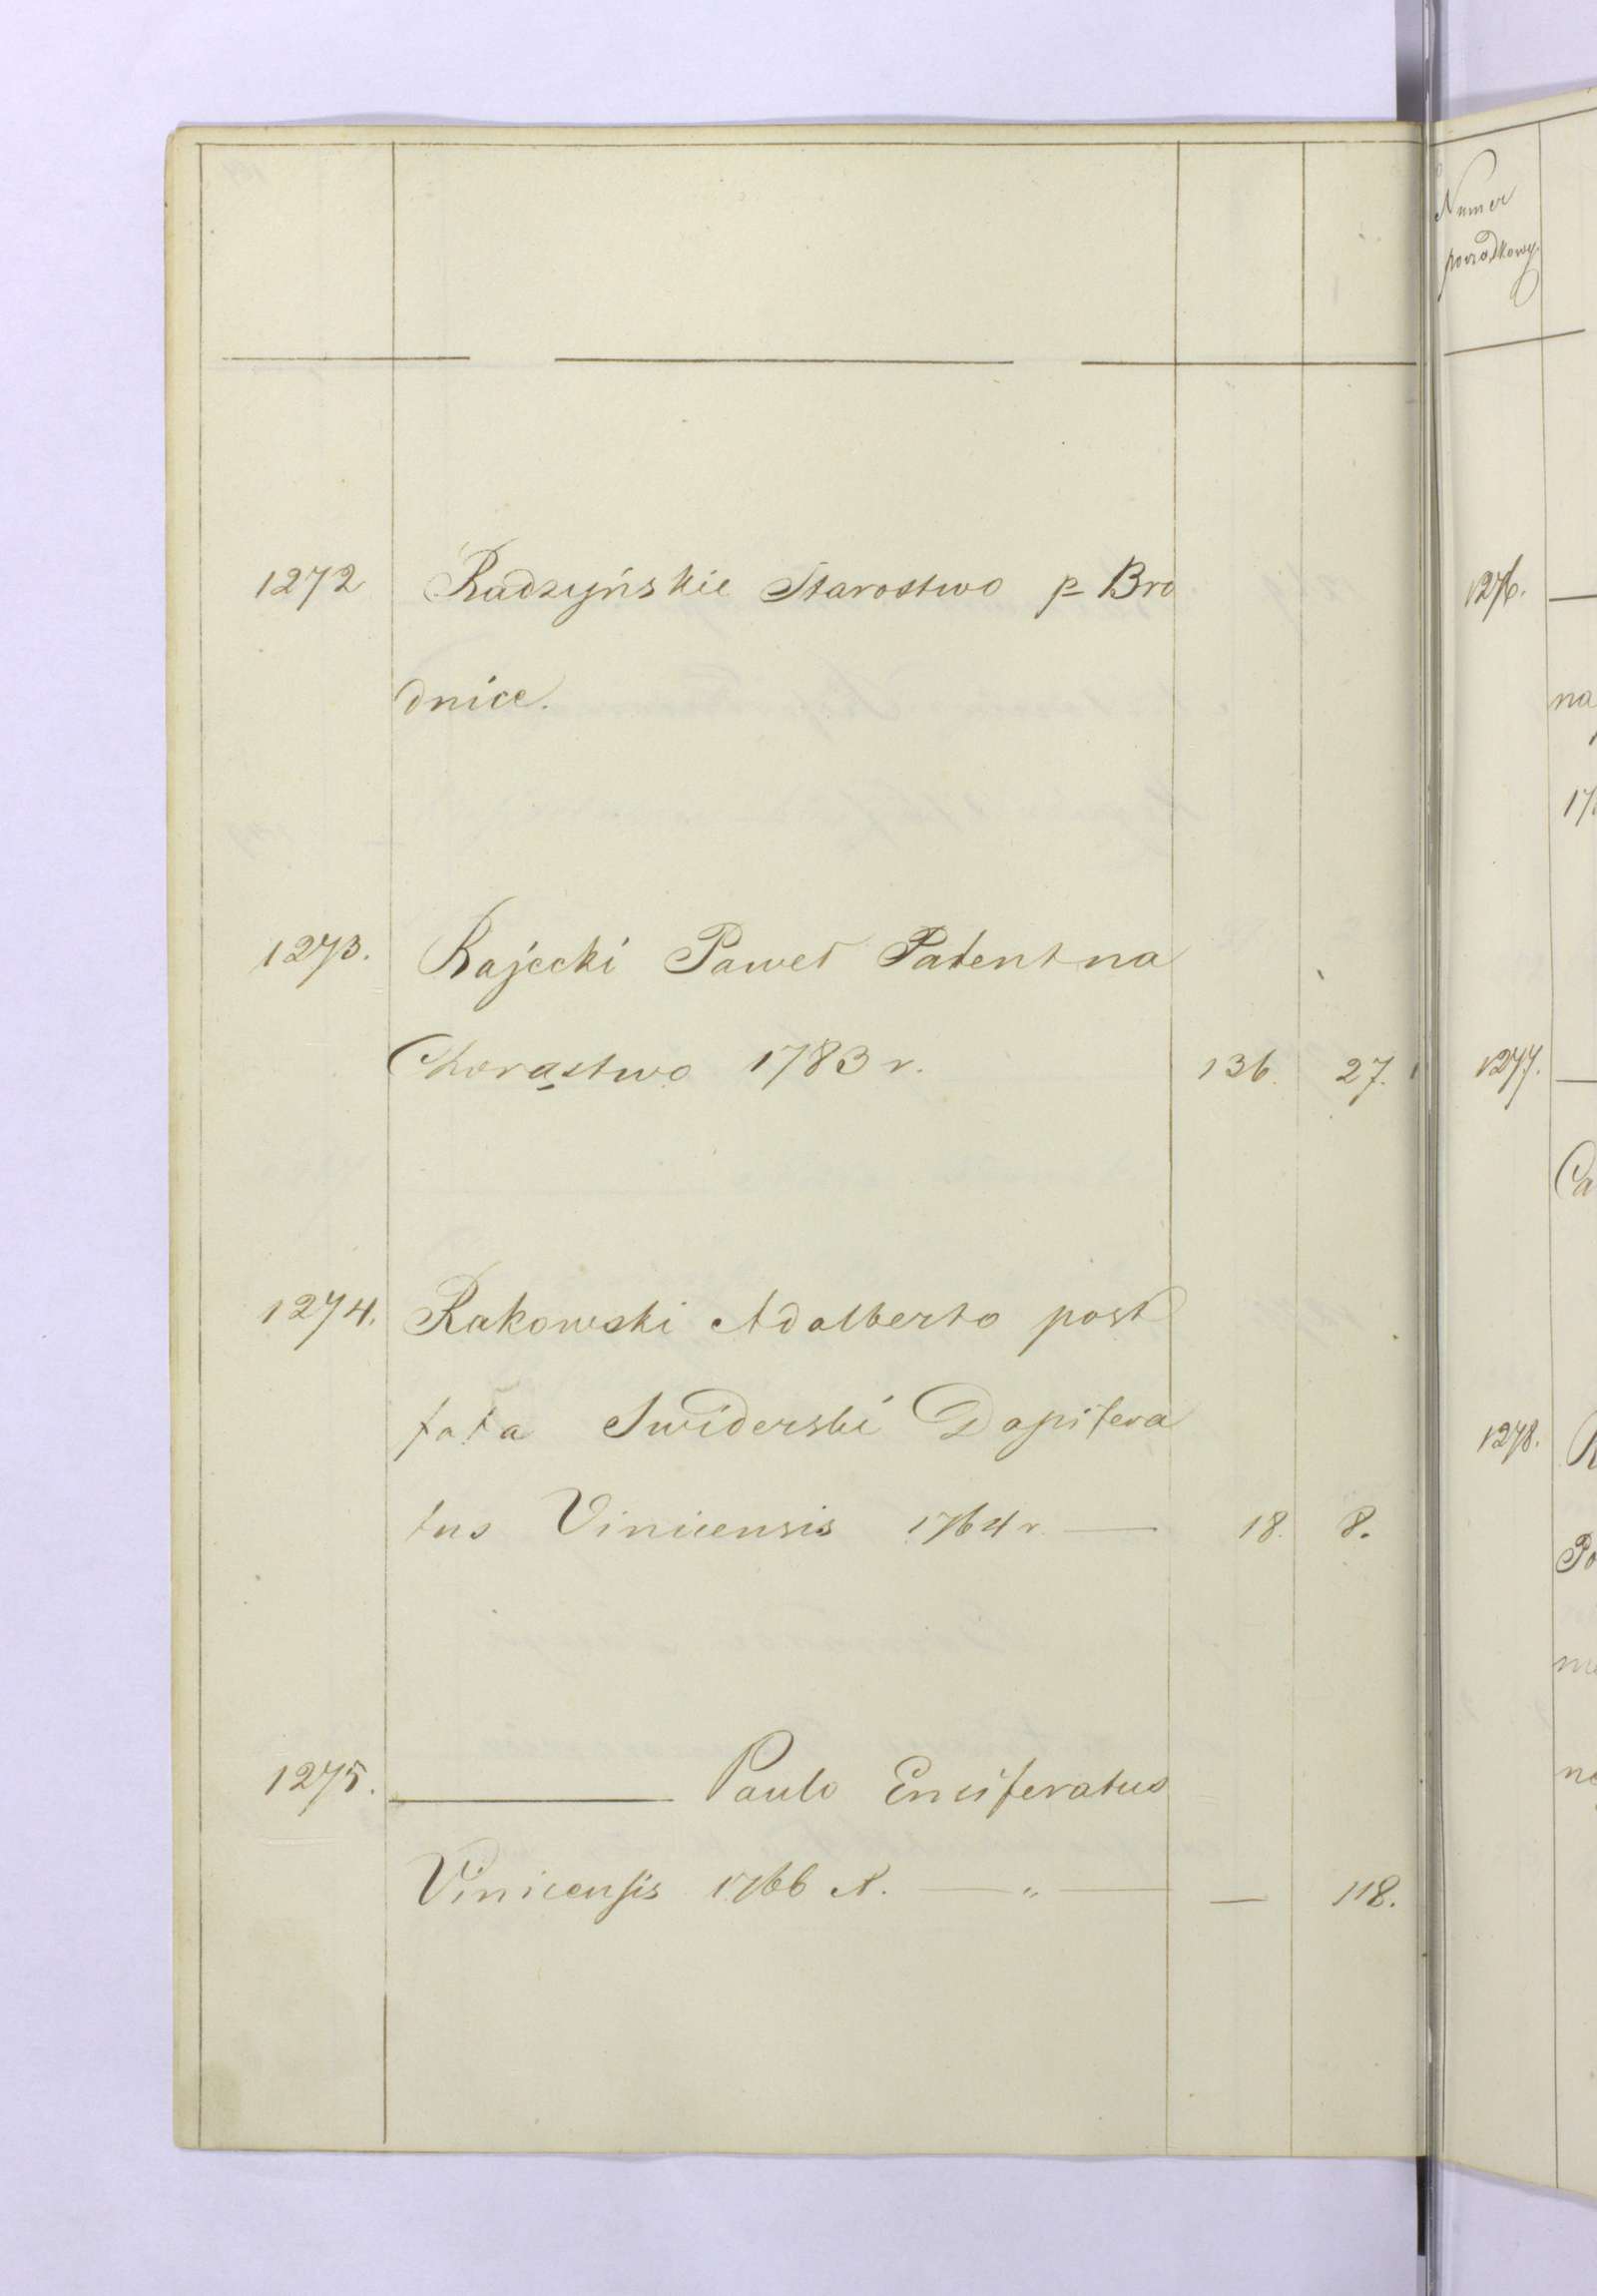 1272 Radzyńskie Starostwo p Bro
dnice.
1273. Rajecki Paweł Patent na
Chorąstwo 1783 r. 136. 27.
1274. Rakowski Adalberto post
fata Swiderski Dapifera
tus Vinicensis 1764 r. — 18. 8.
1275. ——— Paulo Ensiferatus
Vinicensis 1766 r. — „ — — 118.
Numer
porządkowy.
1276. —
na
17
1277. —
Ca
1278. R
Po